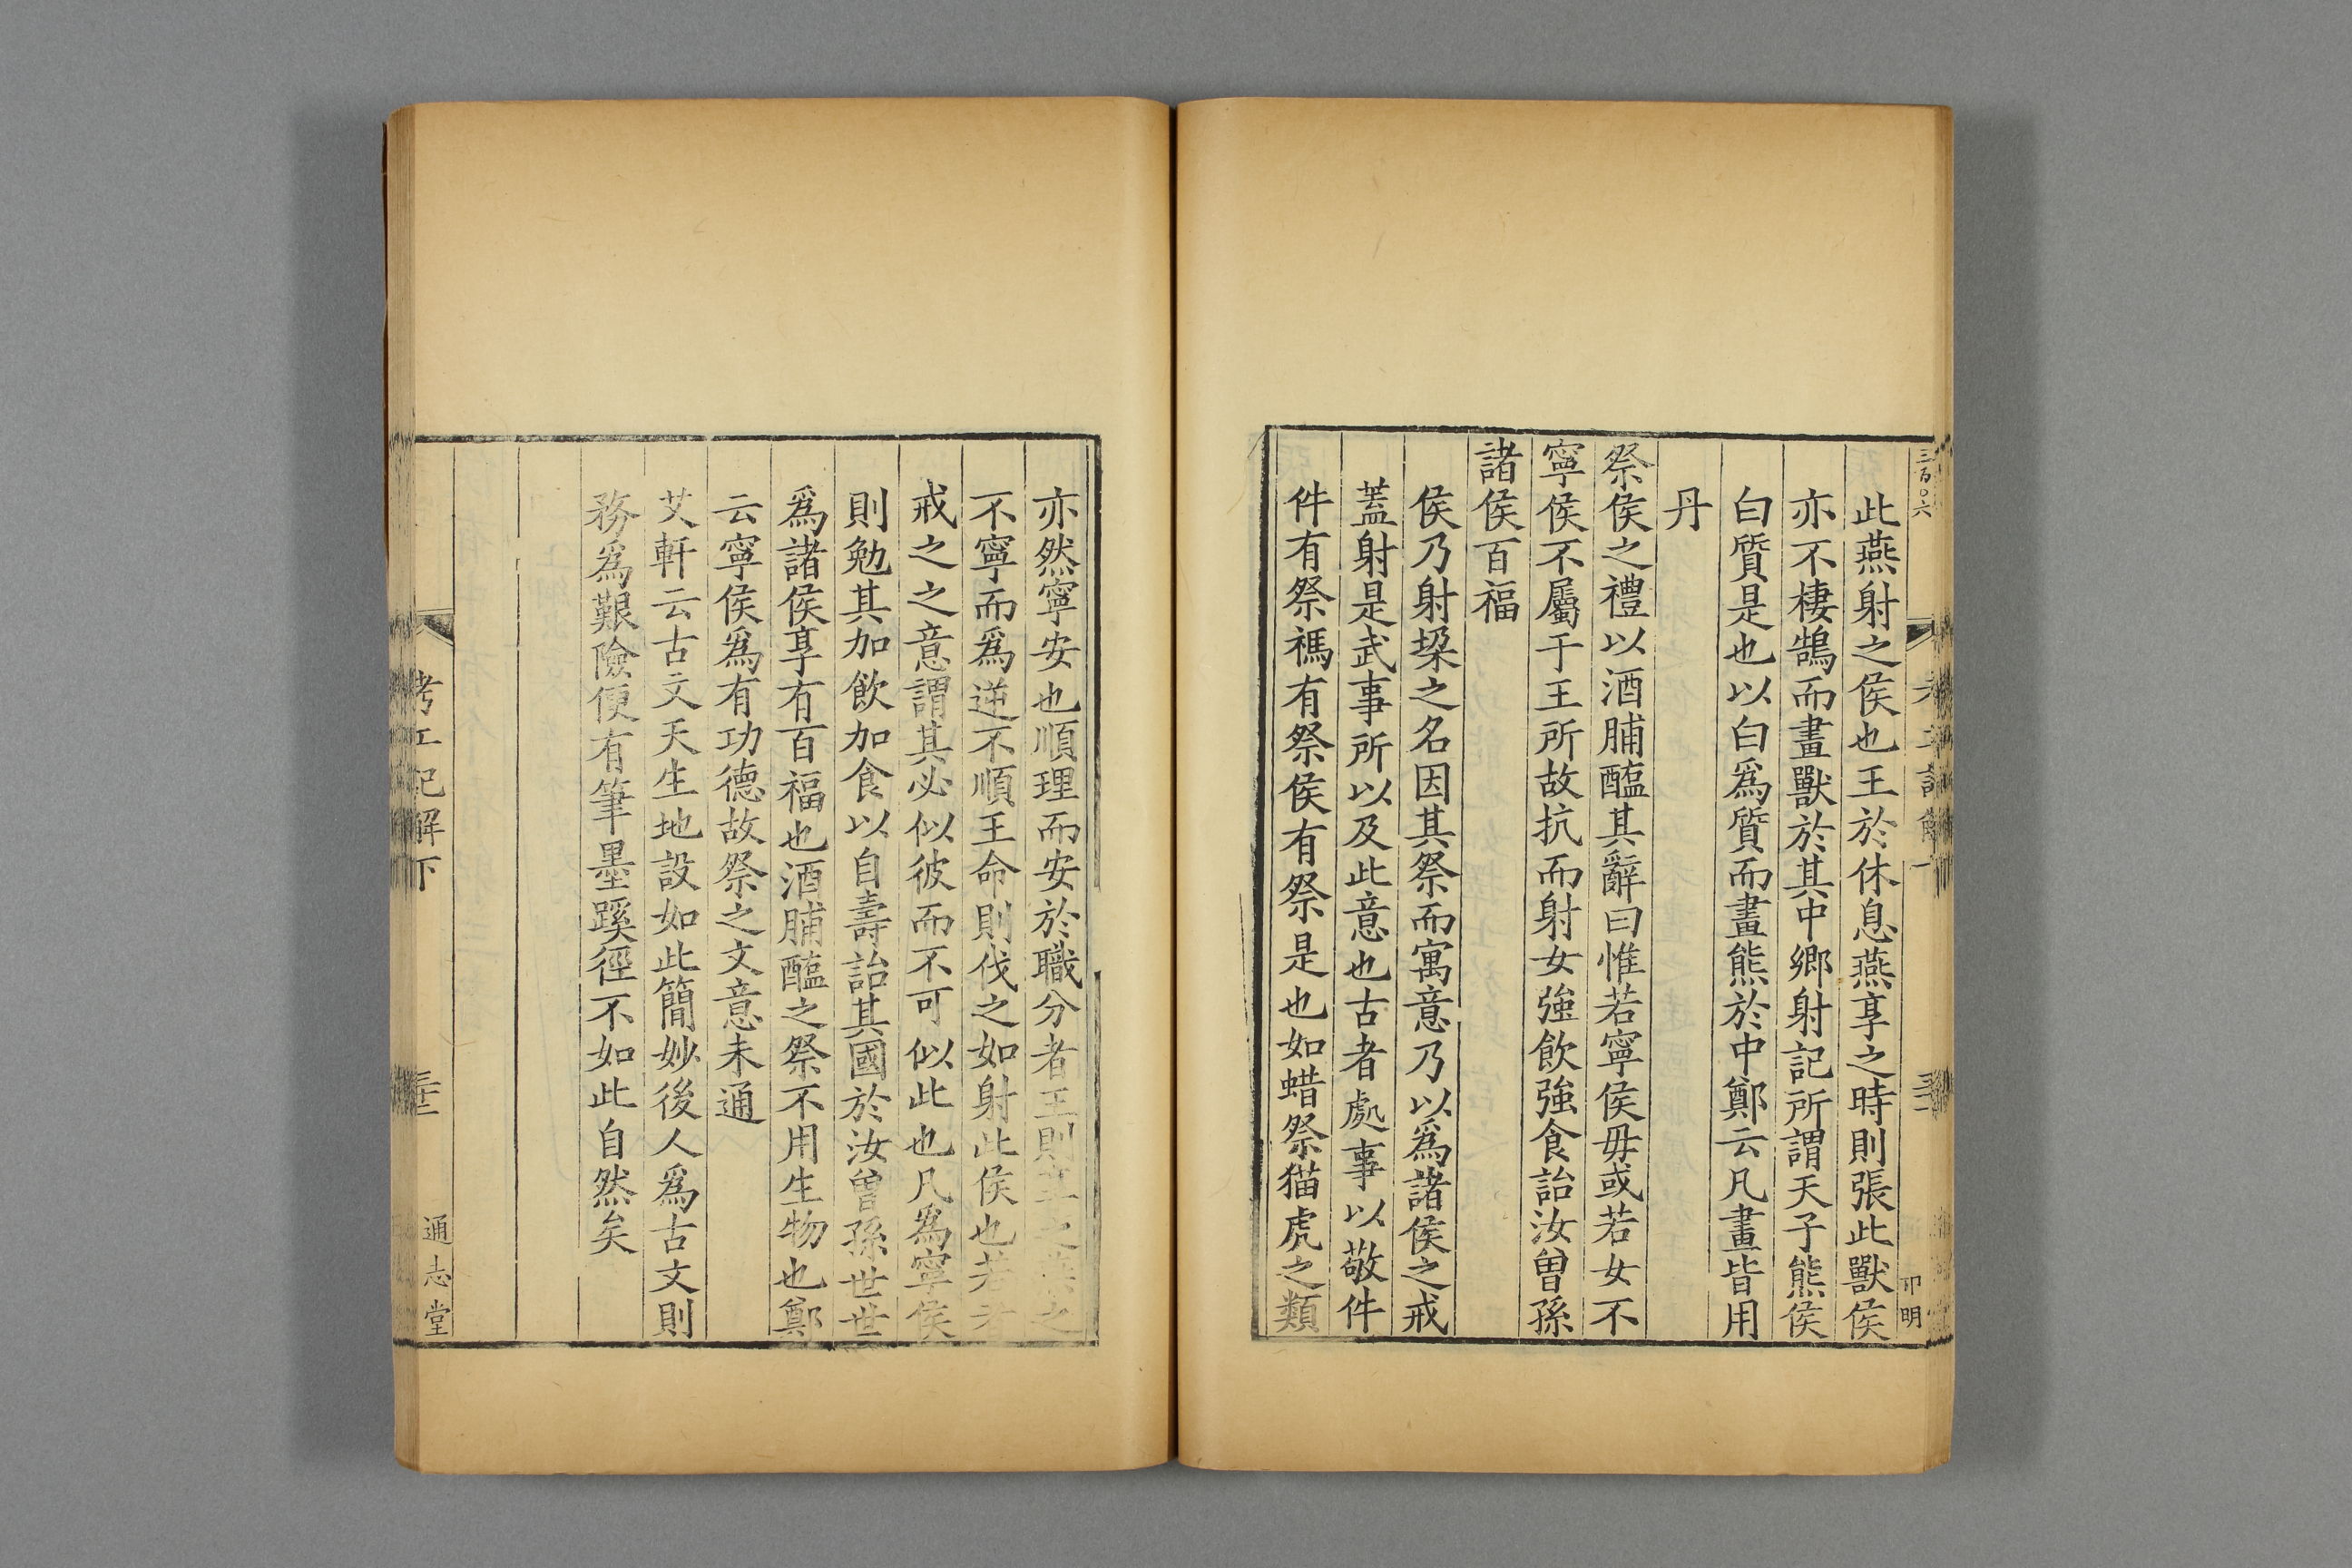 三百〇六
此燕射之侯也王於休息燕享之時則張此獸侯
亦不棲鵠而畫獸於其中鄉射記所謂天子熊侯
白質是也以白爲質而畫熊於中鄭云凡畫皆用
丹
祭侯之禮以酒脯醢其辭曰惟若寧侯毋或若女不
寧侯不屬于王所故抗而射女強飲強食詒汝曾孫
諸侯百福
侯乃射垜之名因其祭而寓意乃以爲諸侯之戒
蓋射是武事所以及此意也古者處事以敬件
件有祭禡有祭侯有祭是也如蜡祭猫虎之類
亦然寧安也順理而安於職分者王則
不寧而爲逆不順王命則伐之如射此侯也若者
戒之之意謂其必似彼而不可似此也凡爲寧侯
則勉其加飲加食以自壽詒其國於汝曾孫世世
爲諸侯享有百福也酒脯醢之祭不用生物也鄭
云寧侯爲有功德故祭之文意未通
艾軒云古文天生地設如此簡妙後人爲古文則
務爲艱險便有筆墨蹊徑不如此自然矣
考工記解下
三十二
通志堂